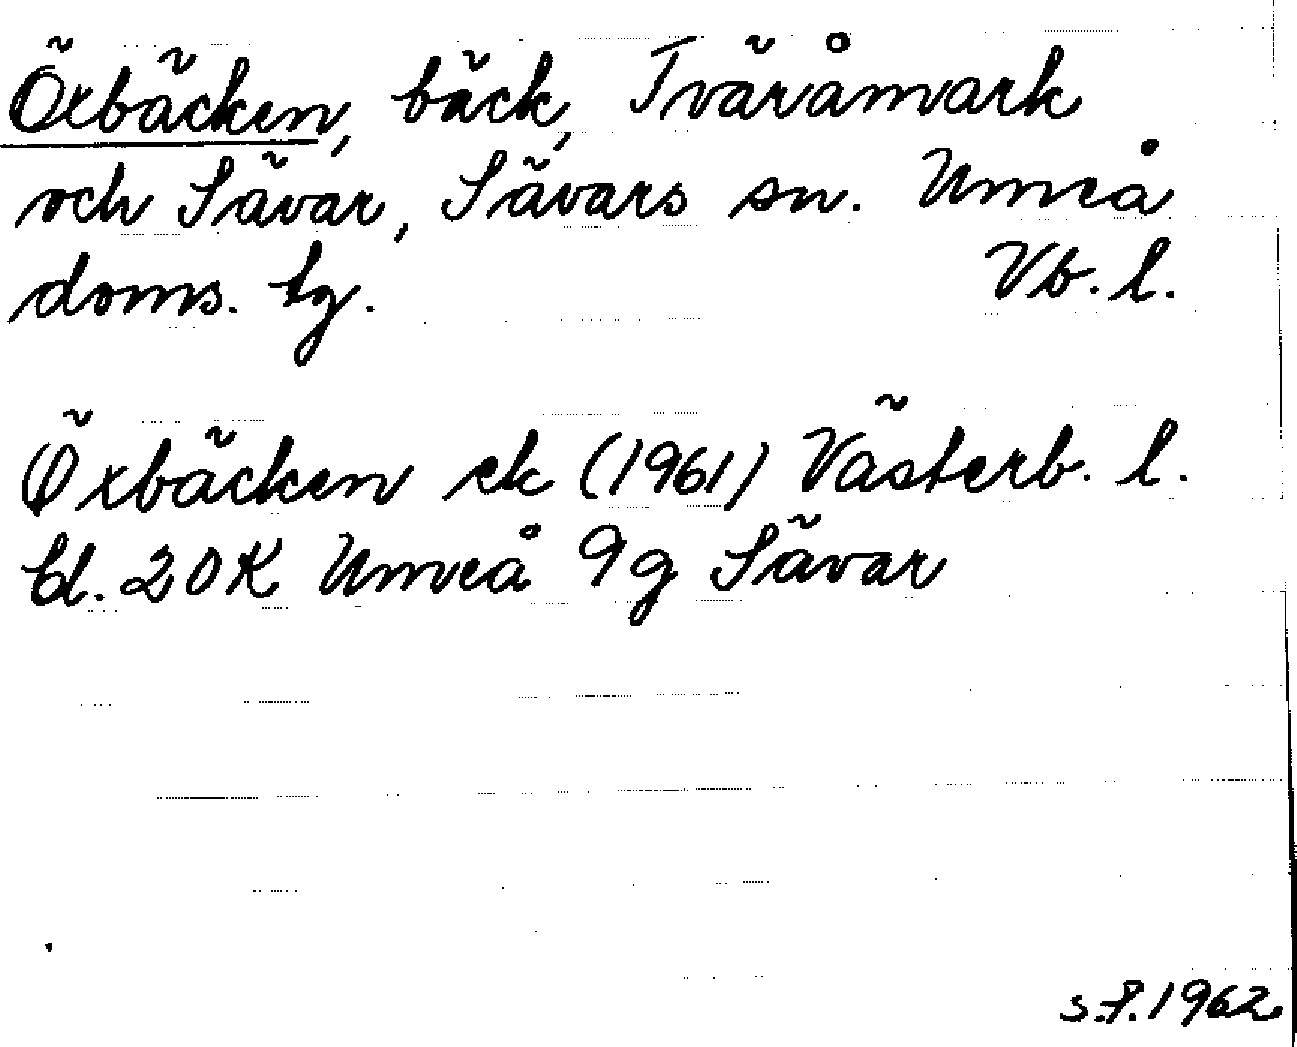 Öxbäcken, bäck, Tväråmark
och Sävar, Sävars sn. Umeå
doms. tg. Vb. l.
Öxbäcken ek (1961) Västerb. l.
bl. 20K Umeå 9g Sävar
s.f. 1962